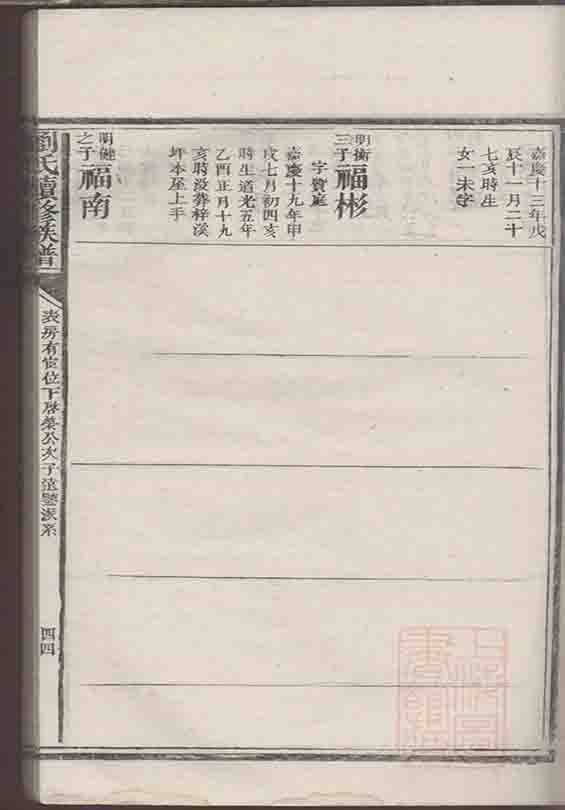 嘉慶十三年戊
辰十一月二十
七亥時生
女一未字
明衡三子福彬
字質庭
嘉慶十九年甲
戌七月初四亥
時生道光五年
乙酉正月十九
亥時沒葬梓溪
坪本至上手
明健之子福南
劉氏續修族譜
表房有宦位下啓榮公次子遠鑒派系
四四